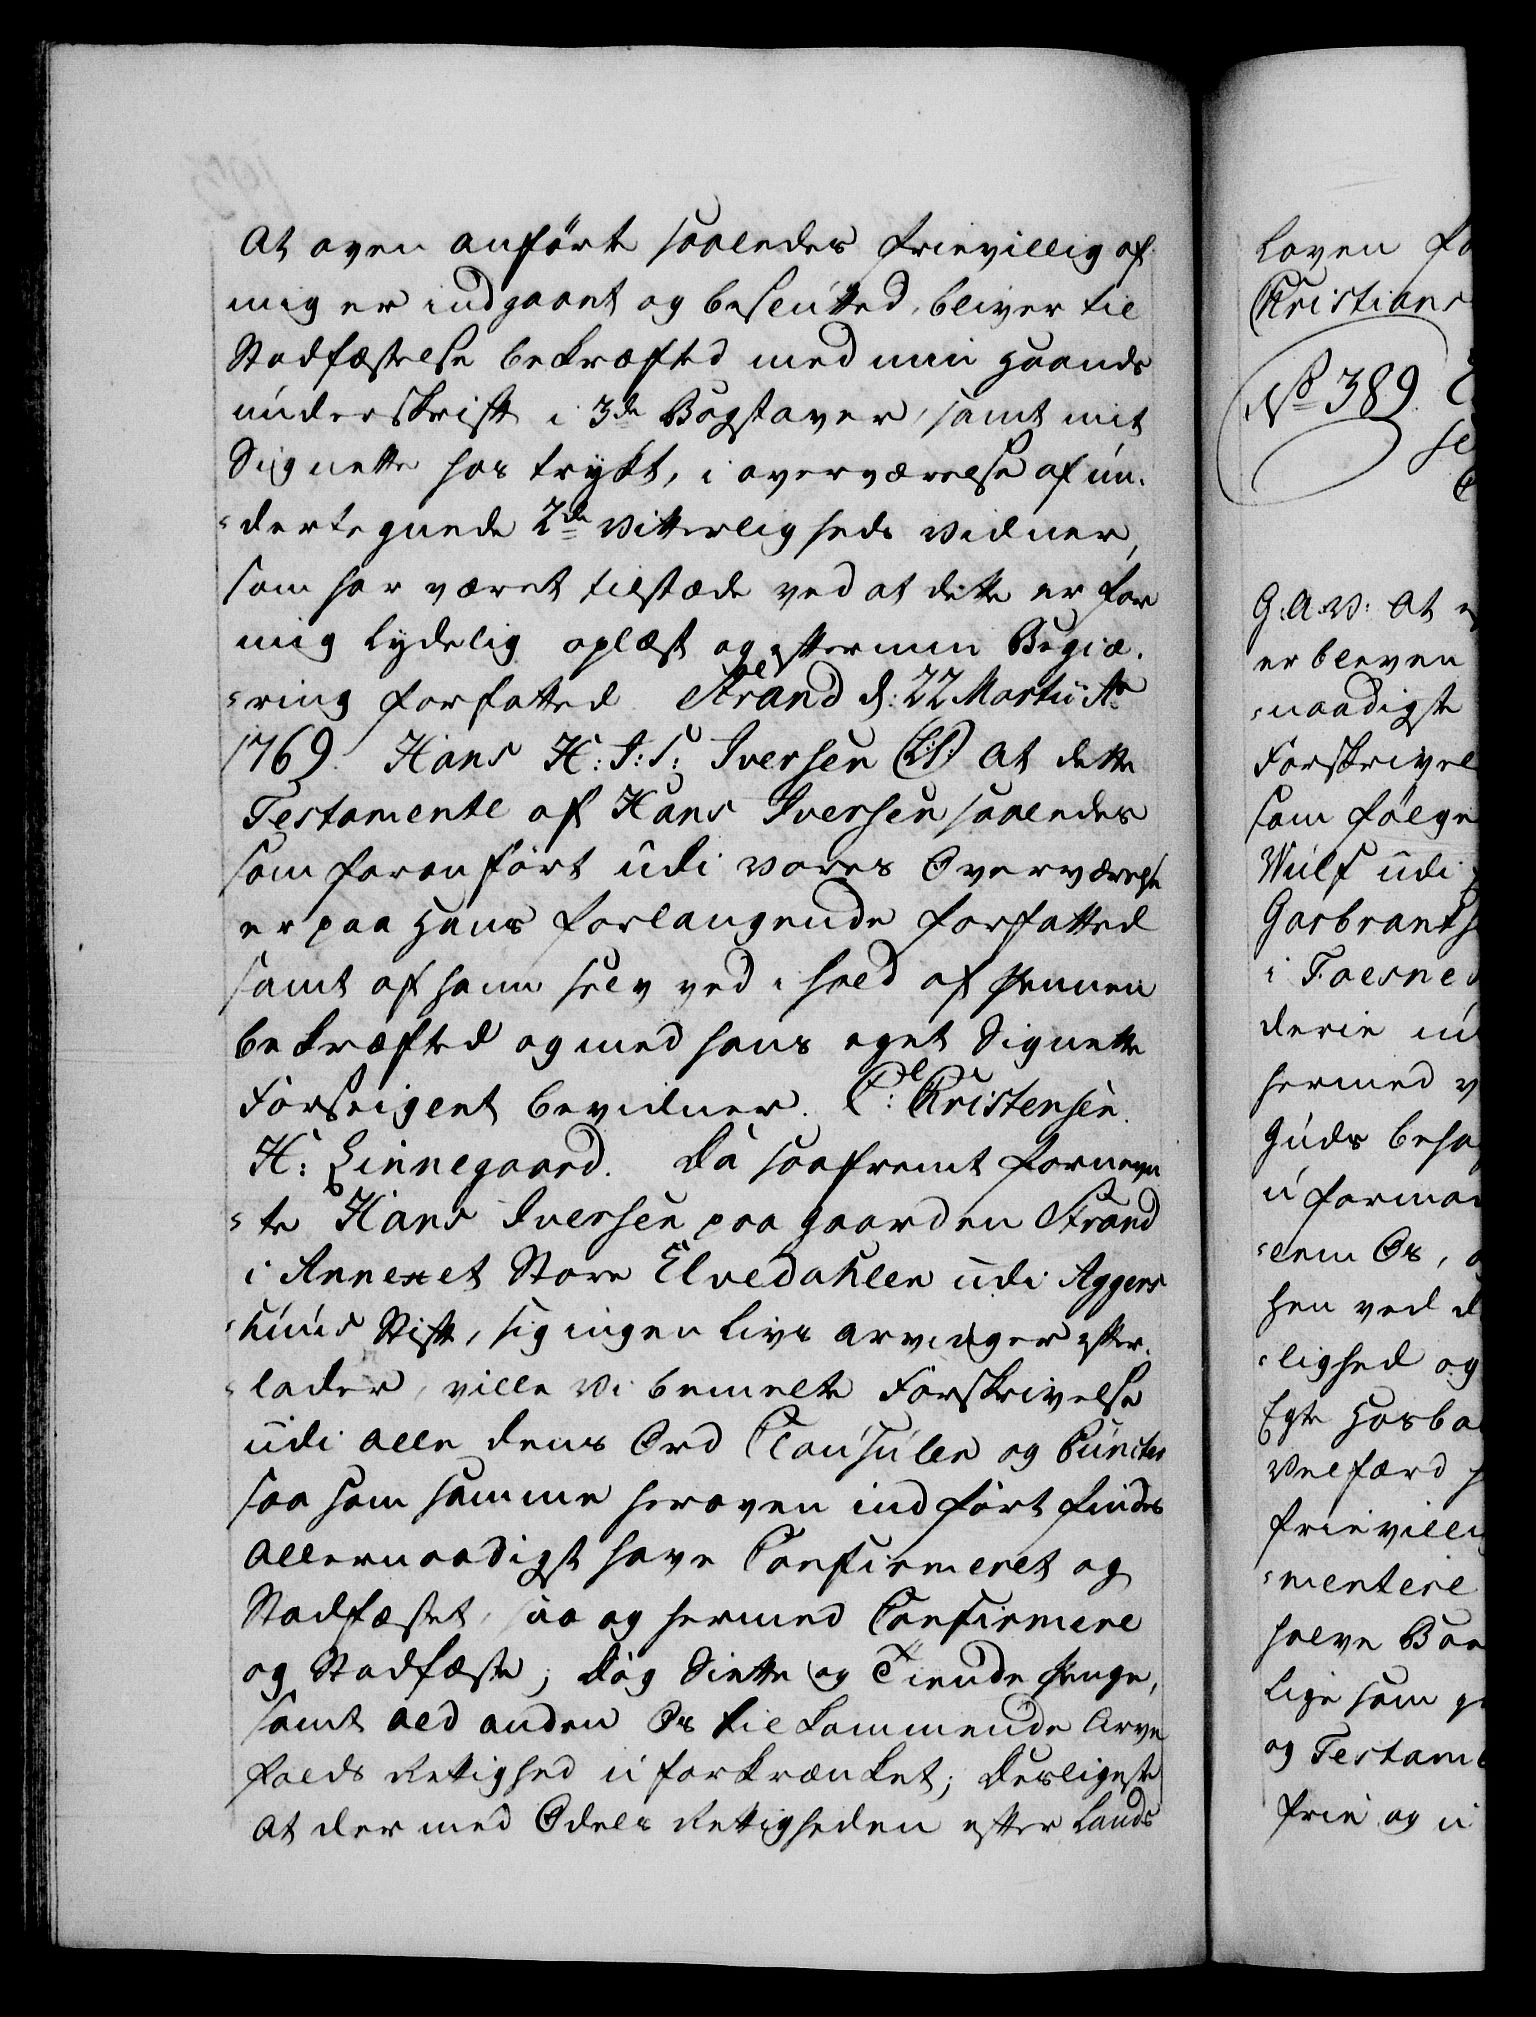 At oven anført saaledes frievillig af
mig er indgaaet og beslutted, bliver til
Stadfæstelse bekræfted med min Haands
underskrift i 3de Bogstaver, samt mit
Signette hos trykt, i overværelse af un-
dertegnede 2de Vitterligheds Vidner,
som har været tilstæde ved at dette er for
mig lydelig oplæst og efter min Begiæ-
ring forfatted. Strand d: 22 Martii Ao
1769. Hans H: I: S: Iversen (L.S.) At dette
Testamente af Hans Iversen saaledes
som foranført udi vores Overværelse
er paa Hans forlangende forfatted
samt af ham selv ved i hold af Pennen
bekræfted og med hans eget Signette
Forseiglet bevidner. P: Christensen.
H: Linnegaard. Da saafremt fornevn-
te Hans Iversen paa gaarden Strand
i Annexet Store Elvedahlen udi Aggers-
huus Stift, sig ingen Livs Arvinger efter-
lader, ville Vi bemelte Forskrivelse
udi alle dens Ord Clausuler og Puncter
saa som samme heroven indført findes
Allernaadigst have Confirmeret og
Stadfæstet, saa og hermed Confirmere
og Stadfæste; Dog Siette og Tiende Penge,
samt ald anden Os tilkommende Arve
falds Rettighed uforkrænket; Desligeste
At der med Odels Rettigheden efter Lands
Loven
Christians
No 389.
G.A.V: At
er bleven
naadigst
Forskrivel
som følger
Wulf udi
Gasbrants
i Foesne
derie
hermed
Guds
uformo
lem Os,
hen ved
lighed og
Egte Hosbo
Velfærd
frievillig
mentere
halve Boe
lige som
og Testam
frie og u